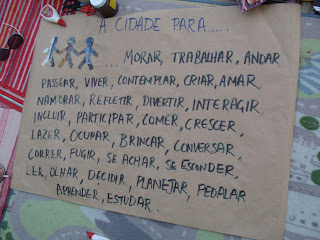 A CIDADE PARA.....
... MORAR, TRABALHAR, ANDAR
PASSEAR, VIVER, CONTEMPLAR, CRIAR, AMAR,
NAMORAR, REFLETIR, DIVERTIR, INTERAGIR
INCLUIR, PARTICIPAR, COMER, CRESCER,
LAZER, OCUPAR, BRINCAR, CONVERSAR,
CORRER, FUGIR, SE ACHAR, SE ESCONDER,
LER, OLHAR, DECIDIR, PLANEJAR, PEDALAR
APRENDER, ESTUDAR.